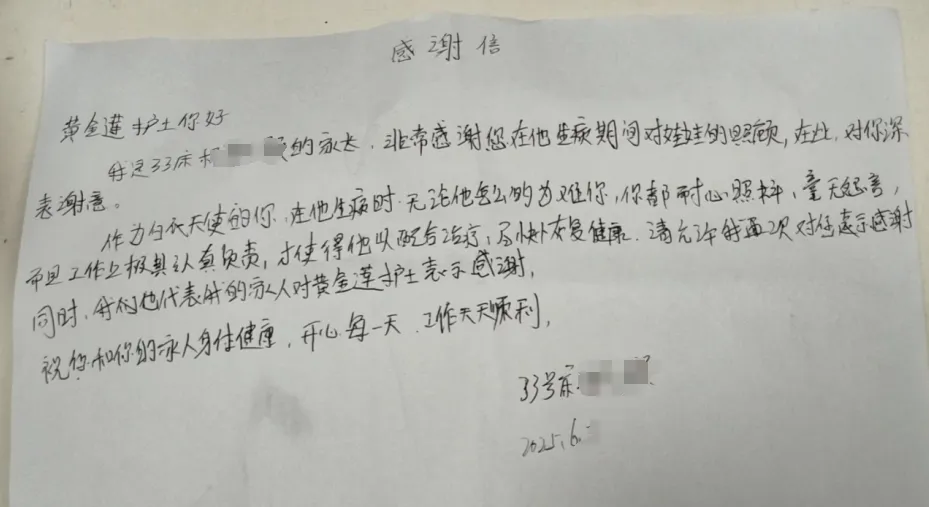 感谢信
黄金莲护士你好
我是33床 的家长,非常感谢您在他生病期间对娃娃的照顾,在此,对你深
表谢意。
作为白衣天使的你,在他生病时无论他怎么的为难你,你都耐心照料,毫无怨言,
而且工作上极其认真负责,才使得他以配合治疗,尽快恢复健康.请允许我再次对你表示感谢
同时,我们也代表我的家人对黄金莲护士表示感谢,
祝您和你的家人身体健康,开心每一天,工作天天顺利,
33号床
2025.6.